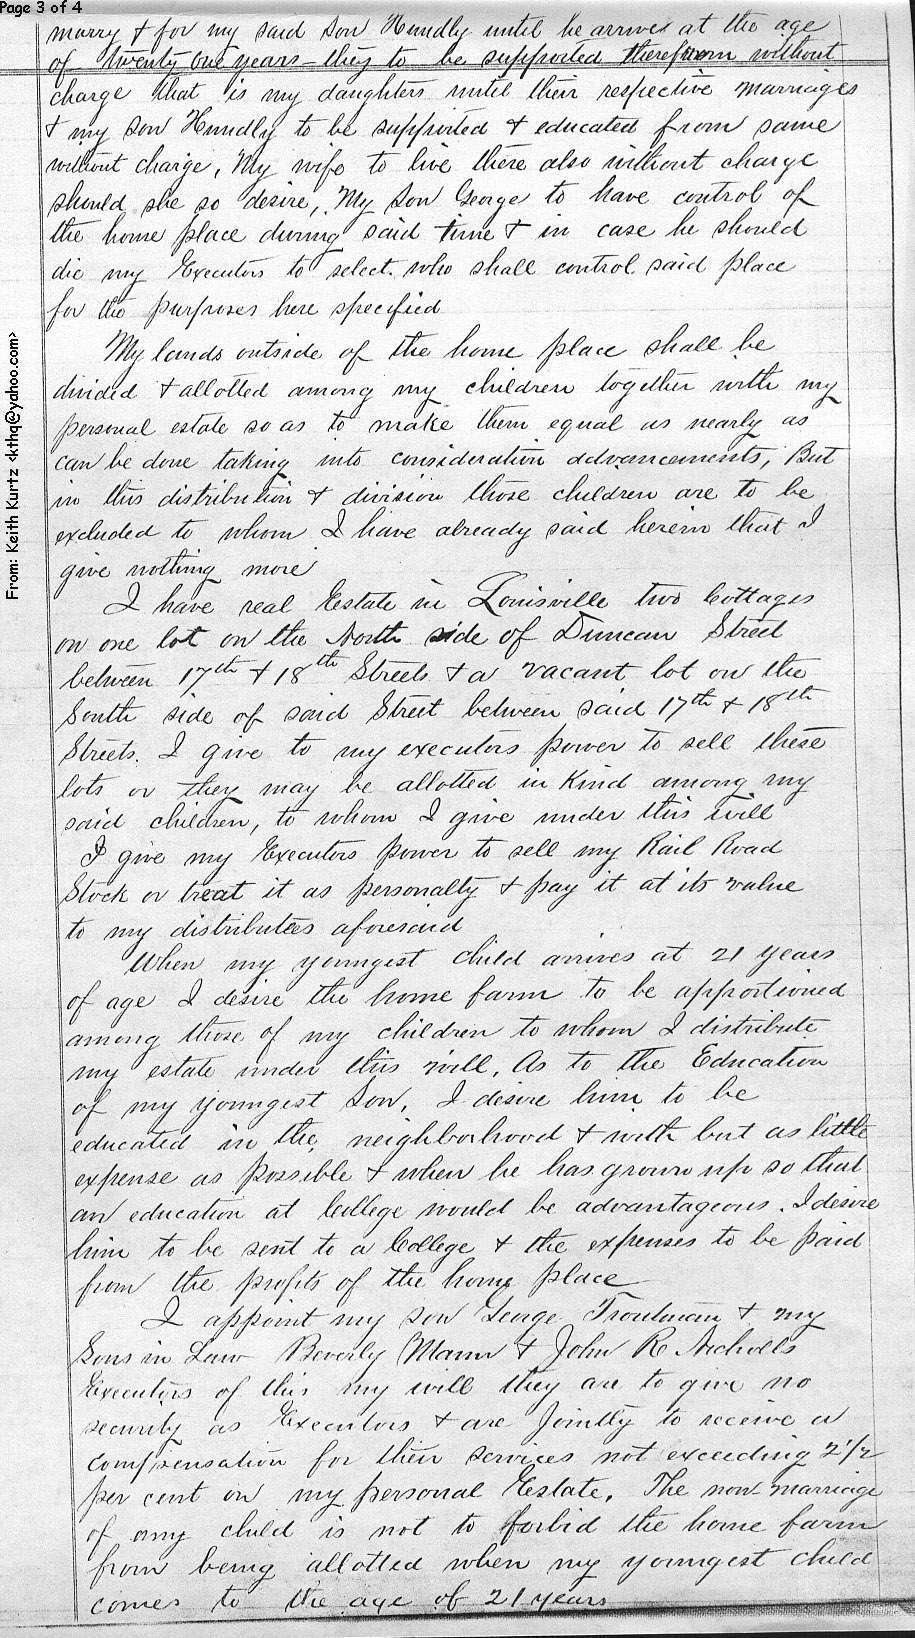 Page 3 of 4
From: Keith Kurtz <kthq@yahoo.com>
marry & for my said son Hundly until he arrives at the age
of twenty one years - they to be supported therefrom without
charge that is my daughters until their respective marriages
& my son Hundly to be supported & educated from same
without charge, My wife to live there also without charge
should she so desire, My Son George to have control of
the home place during said time & in case he should
die my Executors to select who shall control said place
for the purposes here specified
My lands outside of the home place shall be
divided & allotted among my children together with my
personal estate so as to make them equal as nearly as
can be done taking into consideration advancements, But
in this distribution & division those children are to be
excluded to whom I have already said herein that I
give nothing more
I have real Estate in Louisville two Cottages
on one lot on the North side of Duncan Street
between 17th & 18th Streets & a vacant lot on the
South side of said Street between said 17th & 18th
Streets. I give to my executors power to sell these
lots or they may be allotted in Kind among my
said children, to whom I give under this will
I give my Executors power to sell my Rail Road
Stock or treat it as personalty & pay it at its value
to my distributees aforesaid
When my youngest child arrives at 21 years
of age I desire the home farm to be apportioned
among those of my children to whom I distribute
my estate under this will. As to the Education
of my youngest Son, I desire him to be
educated in the neighborhood & with but as little
expense as possible & when he has grown up so that
an education at College would be advantageous. I desire
him to be sent to a College & the expenses to be paid
from the profits of the home place
I appoint my son George Troutman & my
Sons in Law Beverly Mann & John R. Nicholls
Executors of this my will they are to give no
security as Executors & are Jointly to receive a
compensation for their services not exceeding 2 1/2
per cent on my personal Estate. The non marriage
of any child is not to forbid the home farm
from being allotted when my youngest child
comes to the age of 21 years